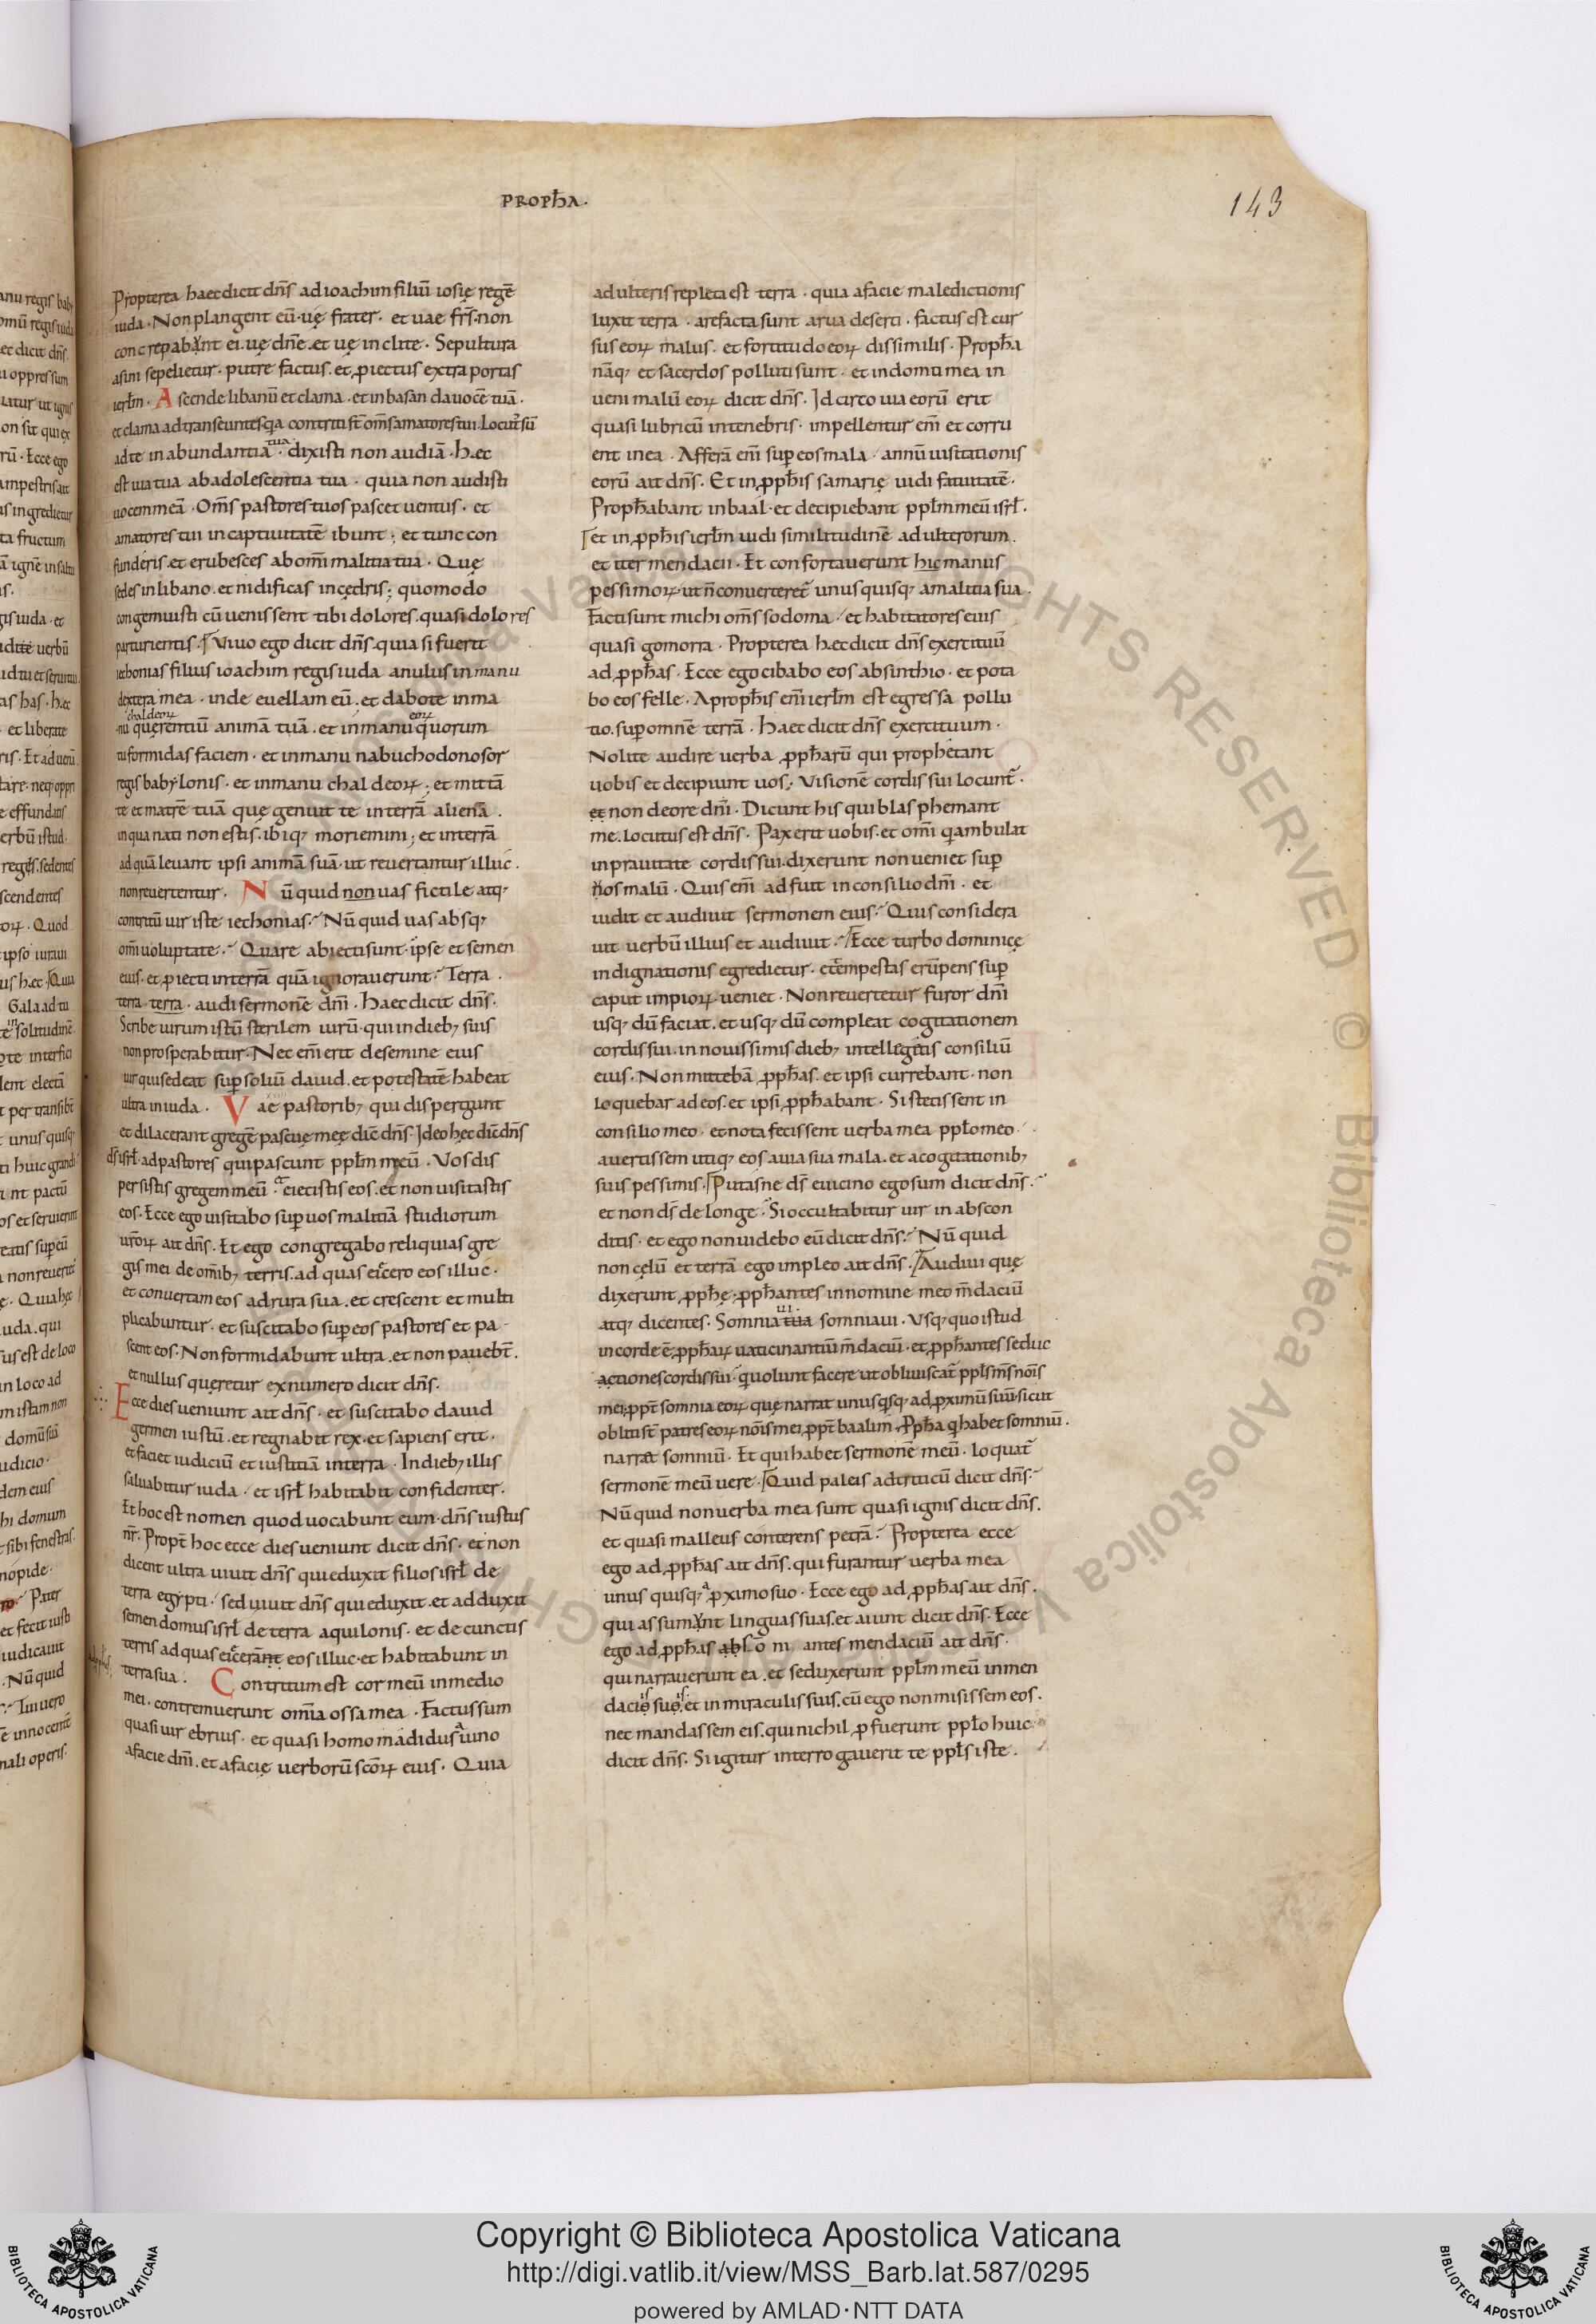 PROPħA·
143
Propterea haec dicit dn̄s ad ioachim filiū iosię regē
iuda · Non plangent eū · uę frater · et uae fr̄s · non
concrepabunt ei · uę dn̄e · et uę inclite · Sepultura
asini sepelietur · putre factus · et ꝓiectus extra portas
ierl̄m · Ascende libanū et clama · et in basan da uocē tuā ·
et clama ad transeuntes q̄a contriti st̄ om̄s amatores tui · Locut᷒ sū
ad te in abundantia tua · dixisti non audiā · H̨ec
est uia tua ab adolescentia tua · quia non audisti
uocem meā · Om̄s pastores tuos pascet uentus · et
amatores tui in captiuitatē ibunt ; et tunc con
funderis · et erubesces ab om̄i malitia tua · Quę
sedes in libano · et nidificas in cędris ; quomodo
congemuisti cū uenissent tibi dolores · quasi dolores
parturientis · Viuo ego dicit dn̄s · quia si fuerit
iechonias filius ioachim regis iuda anulus in manu
dextera mea · inde euellam eū · et dabo te in ma
nu quęrentiū animā tuā · et in manu quorum
chaldeoꝝ eoꝝ
tu formidas faciem · et in manu nabuchodonosor
regis babylonis · et in manu chaldeoꝝ ; et mittā
te et matrē tuā quę genuit te in terrā alienā ·
in qua nati non estis · ibiq; moriemini ; et in terrā
ad quā leuant ipsi animā suā · ut reuertantur illuc ·
non reuertentur · Nū quid non uas fictile atq;
contritū uir iste iechonias · Nū quid uas absq;
om̄i uoluptate · Quare abiecti sunt · ipse et semen
eius · et ꝓiecti in terrā quā ignorauerunt · Terra ·
terra terra · audi sermonē dn̄i · Haec dicit dn̄s ·
Scribe uirum istū sterilem uirū · qui in dieb; suis
non prosperabitur · Nec em̄ erit de semine eius
uir qui sedeat suꝑ soliū dauid · et potestatē habeat
ultra in iuda · Vae pastorib; qui dispergunt
et dilacerant gregē pascuę meę dic̄ dn̄s · Ideo hęc dic̄ dn̄s
ds̄ isrł · ad pastores qui pascunt ppl̄m meū · Vos dis
persistis gregem meū · et eiecistis eos · et non uisitastis
eos · Ecce ego uisitabo suꝑ uos malitiā studiorum
ur̄oꝝ ait dn̄s · Et ego congregabo reliquias gre
gis mei de om̄ib; terris · ad quas eiecero eos illuc ·
et conuertam eos ad rura sua · et crescent et multi
plicabuntur · et suscitabo suꝑ eos pastores et pa-
scent eos · Non formidabunt ultra · et non pauebt̄ ·
et nullus quęretur ex numero dicit dn̄s ·
Ecce dies ueniunt ait dn̄s · et suscitabo dauid
germen iustū · et regnabit rex · et sapiens erit ·
et faciet iudiciū et iustitiā in terra · In dieb; illis
saluabitur iuda · et isrł habitabit confidenter ·
Et hoc est nomen quod uocabunt eum · dn̄s iustus
nr̄ · Propt̄ hoc ecce dies ueniunt dicit dn̄s · et non
dicent ultra uiuit dn̄s qui eduxit filios isrł de
terra egypti · sed uiuit dn̄s qui eduxit · et adduxit
semen domus isrł de terra aquilonis · et de cunctis
terris ad quas eiecerant eos illuc · et habitabunt in
terra sua · Contritum est cor meū in medio
mei · contremuerunt om̄ia ossa mea · Factus sum
quasi uir ebrius · et quasi homo madidus a uino
a facie dn̄i · et a facię uerborū sc̄oꝝ eius · Quia
adulteris repleta est terra · quia a facie maledictionis
luxit terra · arefacta sunt arua deserti · factus est cur
sus eoꝝ malus · et fortitudo eoꝝ dissimilis · Propħa
nāq; et sacerdos polluti sunt · et in domo mea in
ueni malū eoꝝ dicit dn̄s · Idcirco uia eorū erit
quasi lubricū in tenebris · impellentur em̄ et corru
ent in ea · Afferā em̄ suꝑ eos mala · annū uisitationis
eorū ait dn̄s · Et in ꝓpħis samarię uidi fatuitatē ·
Propħabant in baal · et decipiebant ppl̄m meū isrł ·
et in ꝓpħis ierl̄m uidi similitudinē adulterorum ·
et iter mendacii · Et confortauerunt hic manus
pessimoꝝ · ut n̄ conuerteret᷒ unus quisq; a malitia sua ·
Facti sunt michi om̄s sodoma · et habitatores eius
quasi gomorra · Propterea h̨ec dicit dn̄s exercituū
ad ꝓpħas · Ecce ego cibabo eos absinthio · et pota
bo eos felle · A propħis em̄ ierl̄m est egressa pollu
tio · suꝑ omnē terrā · Haec dicit dn̄s exercituum ·
Nolite audire uerba ꝓpħarū qui prophetant
uobis et decipiunt uos · Visionē cordis sui locunt᷒ ·
et non de ore dn̄i · Dicunt his qui blasphemant
me · Locutus est dn̄s · Pax erit uobis · et om̄i q̄ ambulat
in prauitate cordis sui · dixerunt non ueniet suꝑ
uos malū · Quis em̄ adfuit in consilio dn̄i · et
uidit et audiuit sermonem eius · Quis considera
uit uerbū illius et audiuit · Ecce turbo dominicę
indignationis egredietur · et tempestas erūpens suꝑ
caput impioꝝ ueniet · Non reuertetur furor dn̄i
usq; dū faciat · et usq; dū compleat cogitationem
cordis sui · in nouissimis dieb; intellegetis consiliū
eius · Non mittebā ꝓpħas · et ipsi currebant · non
loquebar ad eos · et ipsi ꝓpħabant · Si stetissent in
consilio meo · et nota fecissent uerba mea ppłomeo ·
auertissem utiq; eos a uia sua mala · et a cogitationib;
suis pessimis · Putasne ds̄ e uicino ego sum dicit dn̄s ·
et non ds̄ de longe · Si occultabitur uir in abscon
ditis · et ego non uidebo eū dicit dn̄s · Nū quid
non cęlū et terrā ego impleo ait dn̄s · Audiui quę
dixerunt ꝓpħę · ꝓpħantes in nomine meo m̄daciū
atq; dicentes · Somniaui somniaui · Vsq; quo istud
in corde ē ꝓpħaꝝ uaticinantiū m̄daciū · et ꝓpħantes seduc
actiones cordis sui · q̄ uolunt facere ut obliuiscat᷒ ppłs m̄s nōis
mei · ꝓpt̄ somnia eoꝝ quę narrat unus q̄sq; ad ꝓximū suū · sicut
obliti st̄ patres eoꝝ nōis mei · ꝓpt̄ baalim · Ꝓpħa q̄ habet somniū ·
narrat somniū · Et qui habet sermonē meū · loquat᷒
sermonē meū uere · Quid paleis ad triticū dicit dn̄s ·
Nū quid non uerba mea sunt quasi ignis dicit dn̄s ·
et quasi malleus conterens petrā · Propterea ecce
ego ad ꝓpħas ait dn̄s · qui furantur uerba mea
unus quisq; a ꝓximo suo · Ecce ego ad ꝓpħas ait dn̄s ·
qui assumunt linguas suas · et aiunt dicit dn̄s · Ecce
ego ad ꝓpħas antes mendaciū ait dn̄s ·
qui narrauerunt ea · et seduxerunt ppl̄m meū in men
dacio suo · et in miraculis suis · cū ego non misissem eos ·
nec mandassem eis · qui nichil ꝓfuerunt ppło huic ·
dicit dn̄s · Si igitur interrogauerit te ppłs iste ·
Copyright © Biblioteca Apostolica Vaticana
http://digi.vatlib.it/view/MSS_Barb.lat.587/0295
powered by AMLAD·NTT DATA
BIBLIOTECA APOSTOLICA VATICANA
BIBLIOTECA APOSTOLICA VATICANA